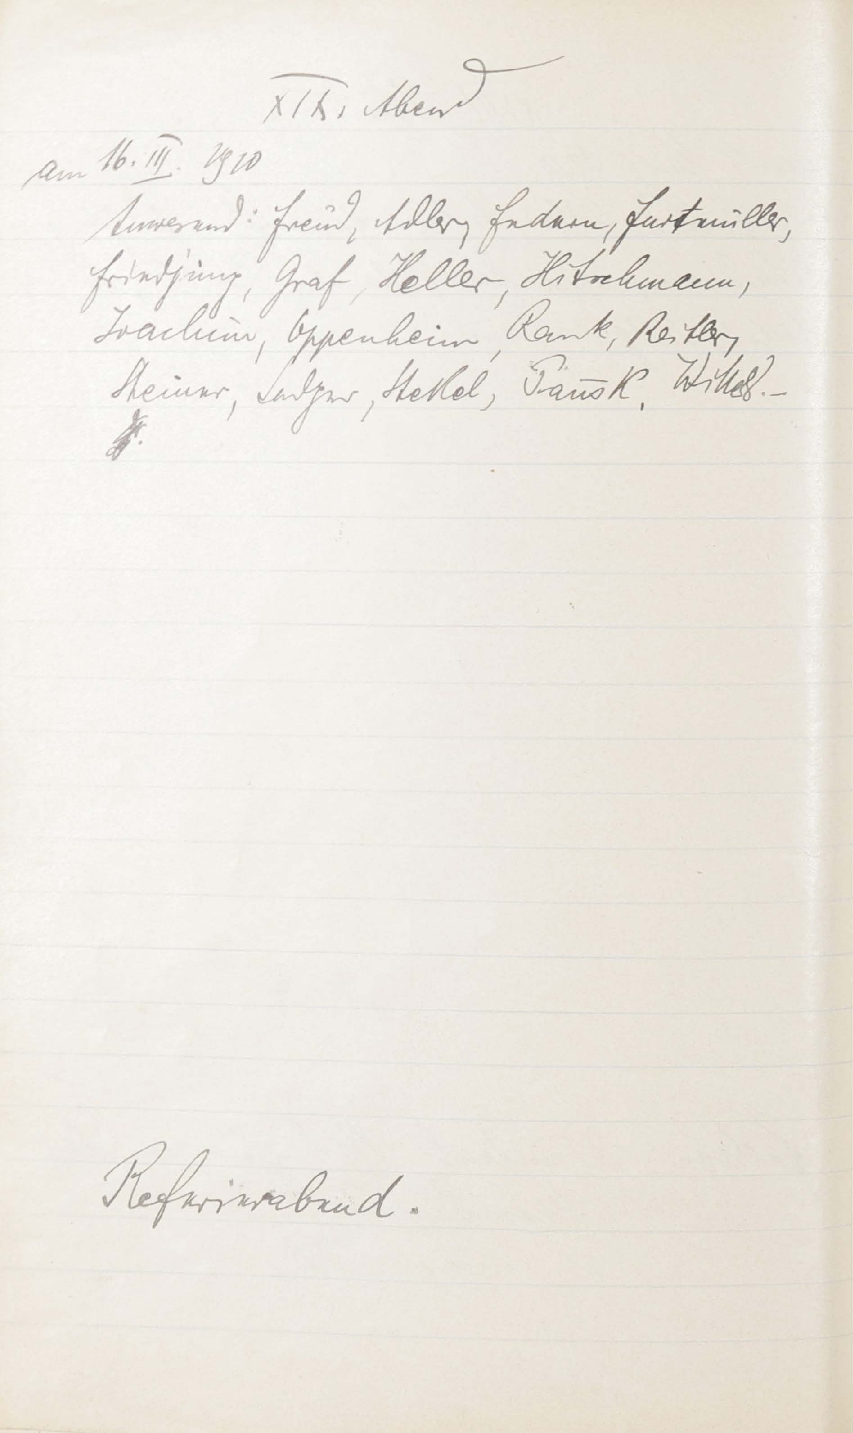 XIX. Abend
am 16. III. 1910
Anwesend: Freud, Adler, Federn, Furtmüller,
Friedjung, Graf, Heller, Hitschmann,
Joachim, Oppenheim, Rank, Reitler,
Steiner, Sadger, Stekel, Tausk, Wittels. –
Referierabend.